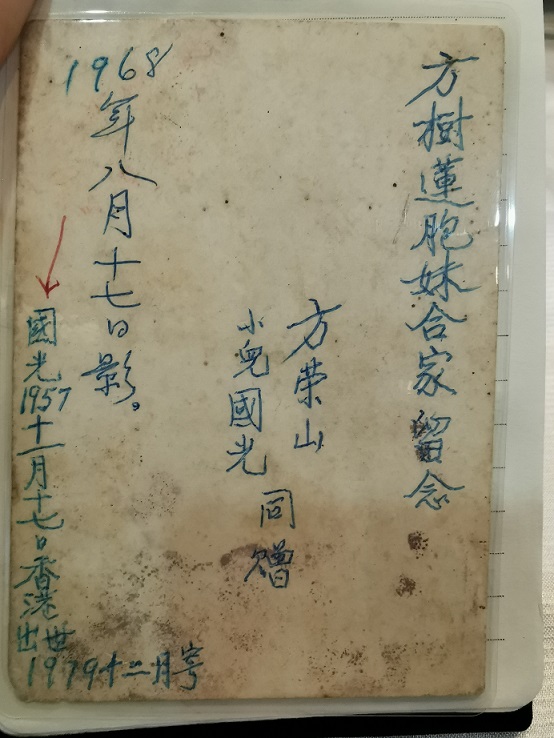 方樹蓮胞妹合家留念
方荣山
小兒國光
同赠
1968年八月十七日影。
國光1957十一月十七日香港出世
1979十二月寄